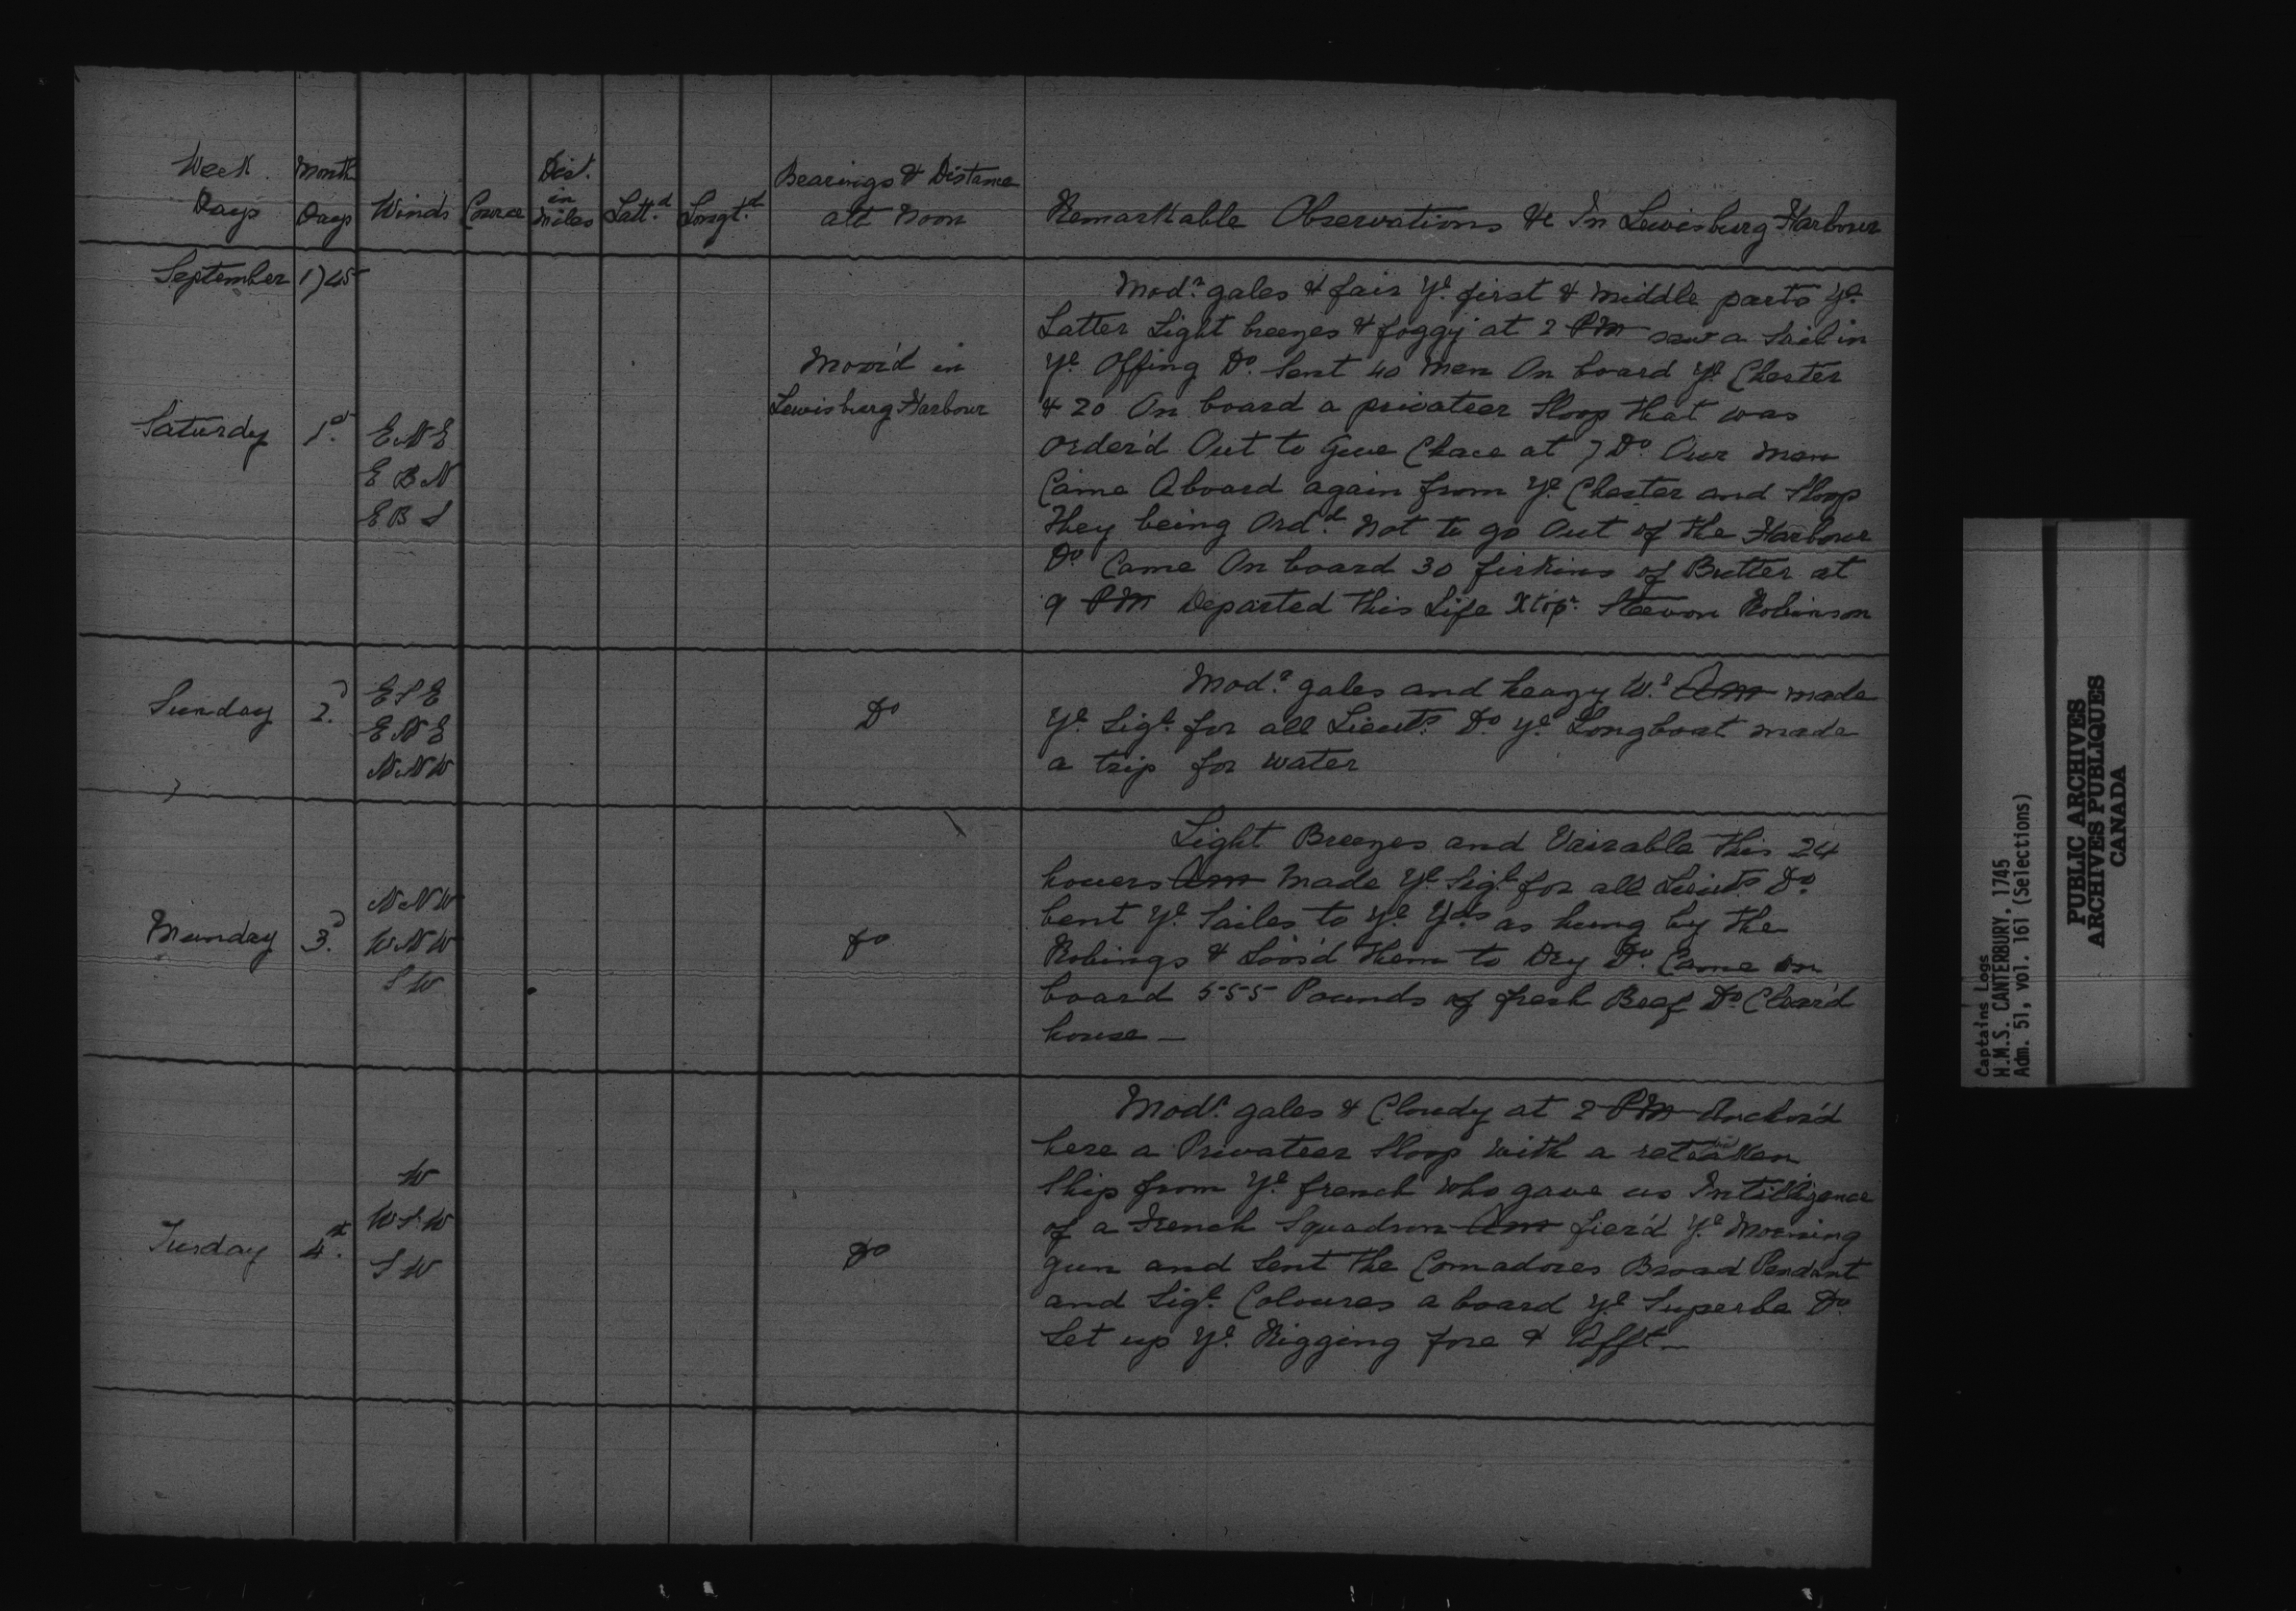 Week Days
Month Days
Winds
Cource
Dist. in Miles
Latt.d
Longt.d
Bearings & Distance
att Noon
Remarkable Observations &c In Lewisburg Harbour
September 1745
Saturdy
1d
E N E
E B N
E B S
Moor'd in
Lewisburg Harbour
Modr. gales & fair Ye. first & middle parts Ye.
Latter Light breezes & foggy at 2 PM saw a Sail in
Ye. Offing Do. Sent 40 Men On board Ye. Chester
& 20 On board a privateer Sloop that was
order'd Out to Give Chace at 7 Do. Our Men
Came Aboard again from Ye. Chester and Sloop
They being Ord.d Not to go Out of the Harbour
Do Came On board 30 firkins of Butter at
9 PM Departed this Life Xtopr. Steevon Robinson
Sunday
2d
E S E
E N E
N N W
Do
Modr. gales and heazy Wr. Am made
Ye. Sigl. for all Lieuts. Do Ye. Longboat made
a trip for water
Munday
3d
N N W
W N W
S W
Do
Light Breezes and Vairable this 24
houers Am Made Ye. Sigl. for all Lieuts Do.
bent Ye. Sailes to Ye. Yds. as hung by the
Robings & Loos'd them to Dry Do. Came on
board 555 Pounds of fresh Beef Do. Clear'd
house —
Tusday
4th
W
W S W
S W
Do
Modr. gales & Cloudy at 2 PM Anchor'd
here a Privateer Sloop with a retaken
Ship from Ye. french who gave us Intilligence
of a French Squadron Am fier'd Ye. Morning
gun and Sent the Comadores Broad Pendant
and Sigl. Coloures a board Ye. Superbe Do.
Set up Ye. Rigging fore & Afft —
Captains Logs
H.M.S. CANTERBURY, 1745
Adm. 51, vol. 161 (Selections)
PUBLIC ARCHIVES
ARCHIVES PUBLIQUES
CANADA